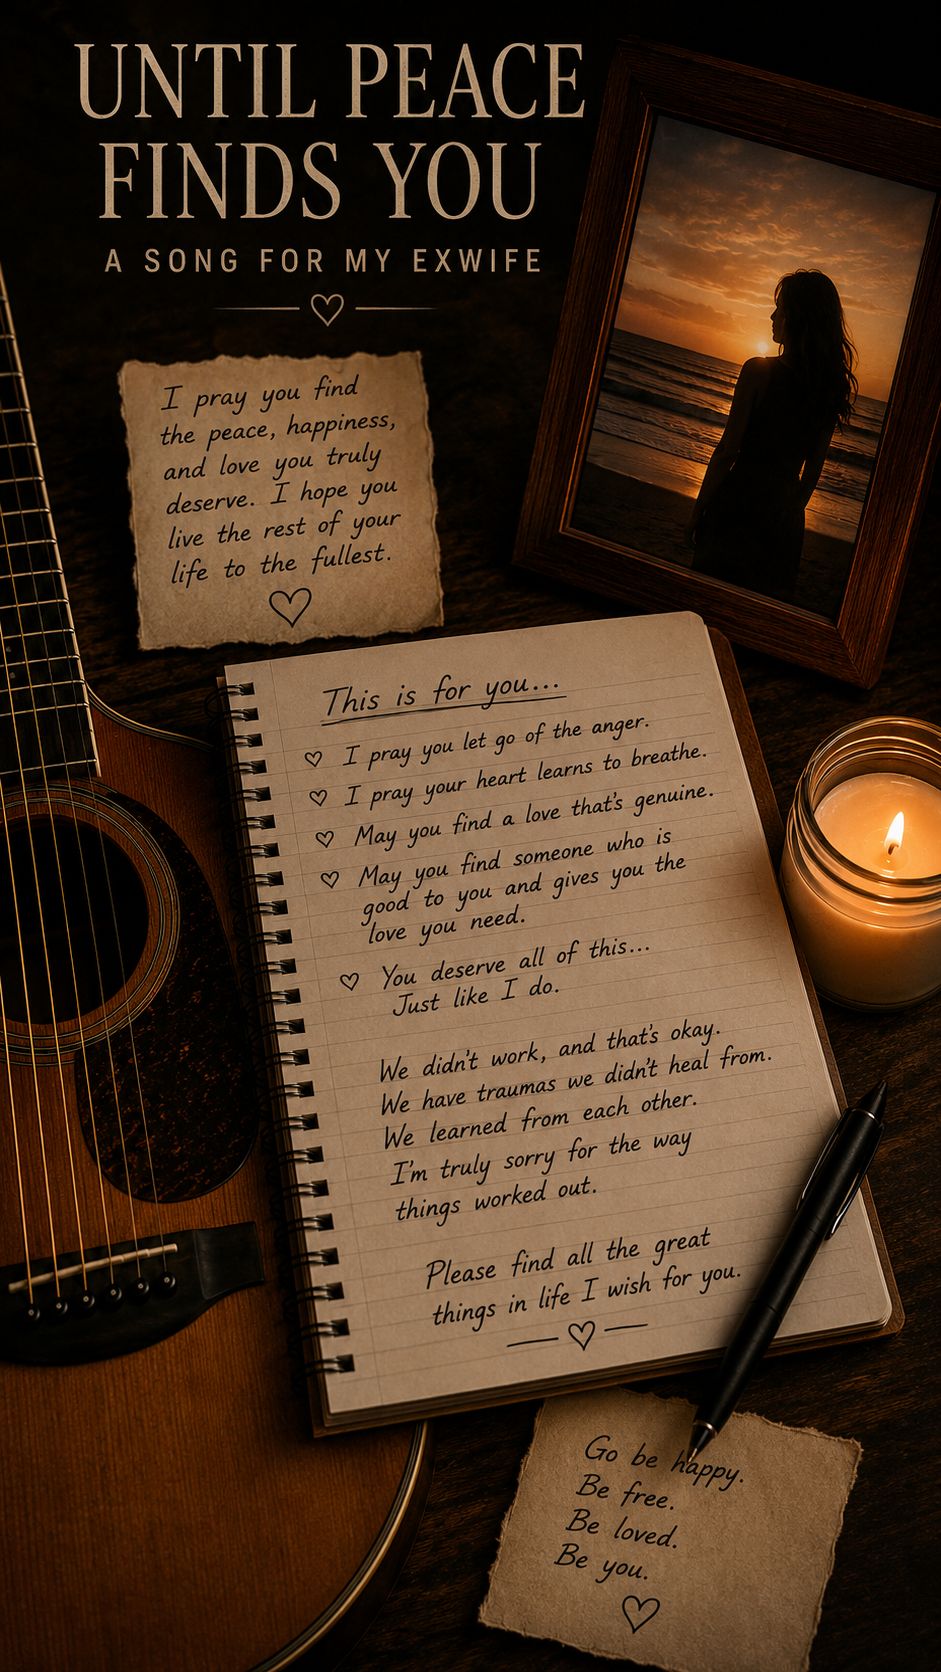 UNTIL PEACE
FINDS YOU
A SONG FOR MY EXWIFE
I pray you find
the peace, happiness,
and love you truly
deserve. I hope you
live the rest of your
life to the fullest.
This is for you...
I pray you let go of the anger.
I pray your heart learns to breathe.
May you find a love that's genuine.
May you find someone who is
good to you and gives you the
love you need.
You deserve all of this...
Just like I do.
We didn't work, and that's okay.
We have traumas we didn't heal from.
We learned from each other.
I'm truly sorry for the way
things worked out.
Please find all the great
things in life I wish for you.
Go be happy.
Be free.
Be loved.
Be you.